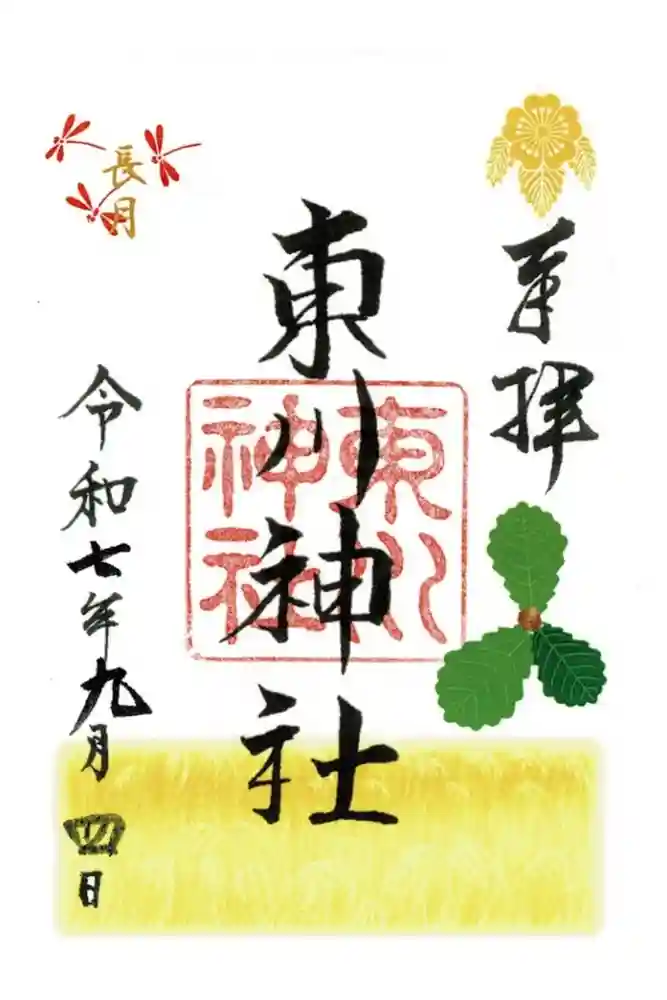 奉拝
東川神社
東川
神社
長月
令和七年九月四日